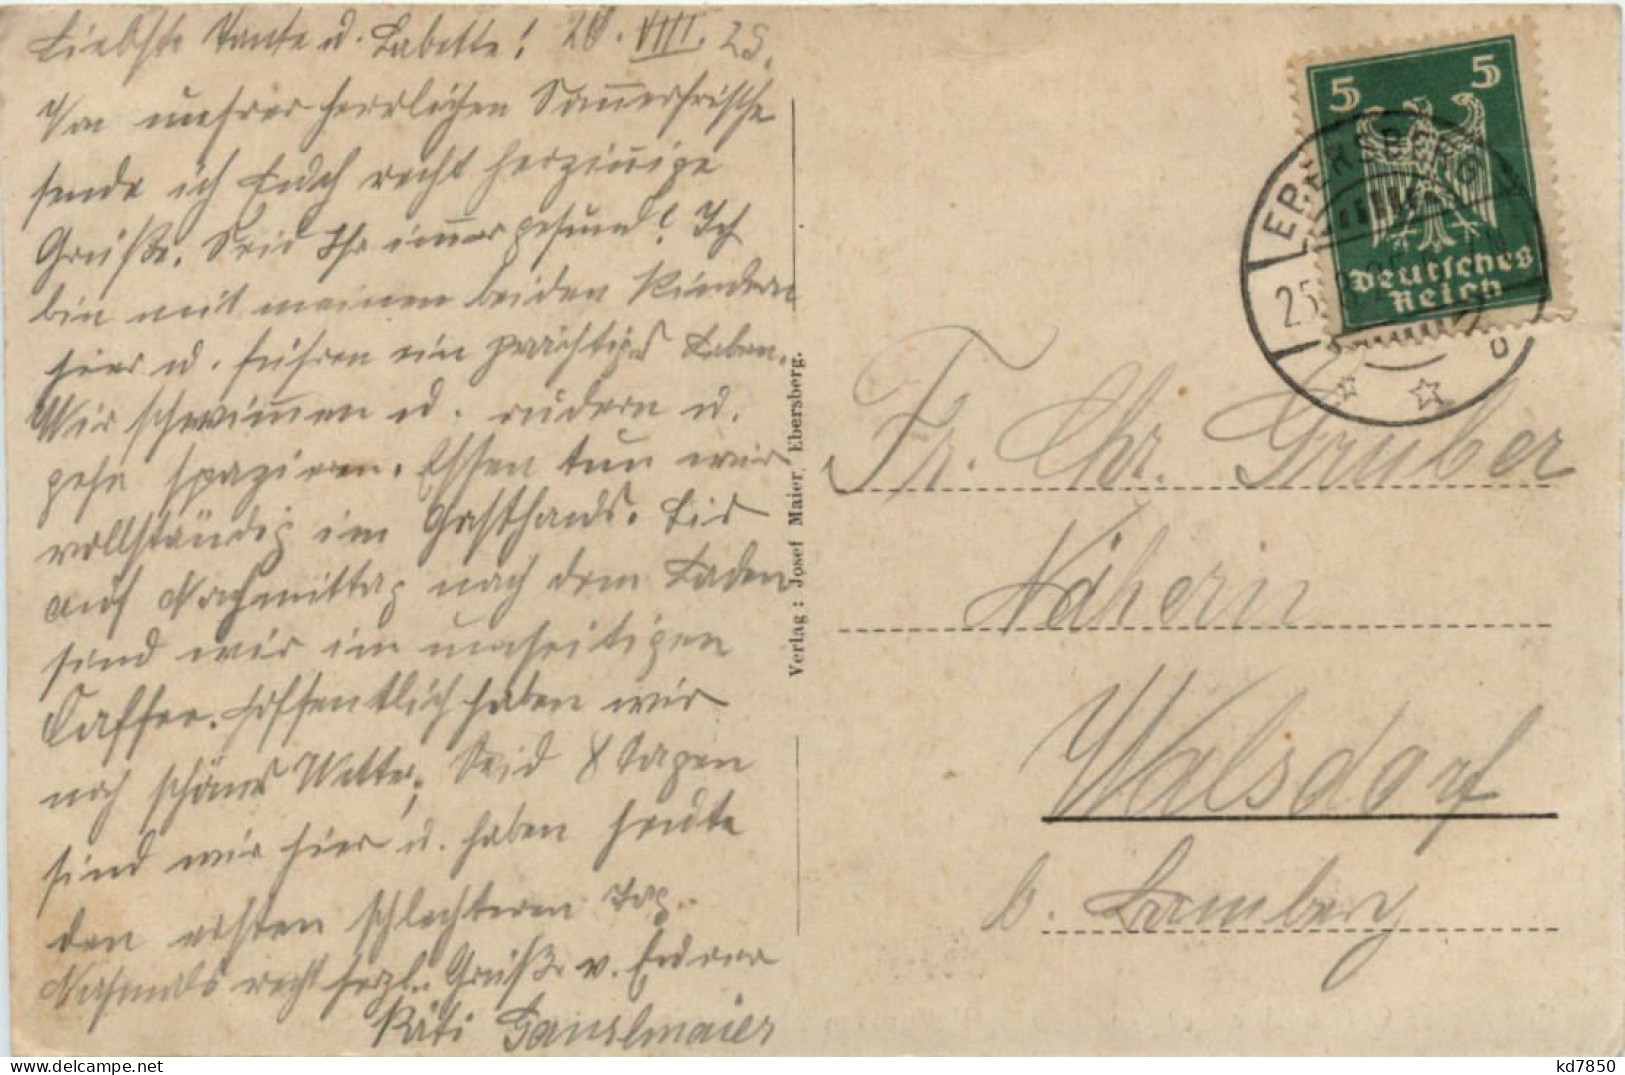 Liebste Tante u. Babette! 20. VIII. 25.
Von unsrer herrlichen Sommerfrische
sende ich Euch recht herzinnige
Grüße. Seid Ihr immer gesund? Ich
bin mit meinen beiden Kindern
hier u. führen ein prächtiges Leben.
Wir schwimmen u. rudern u.
gehn spazieren. Essen tun wir
vollständig im Gasthaus. Bis
auf Nachmittag nach dem Baden
sind wir im
Kaffee. Hoffentlich haben wir
noch schönes Wetter. Seid 8 Tagen
sind wir hier u. haben heute
den ersten schlechteren Tag.
Nochmals recht herzl. Grüße v. Eurer
Käti Ganslmaier
Verlag: Josef Maier, Ebersberg.
5 5
Deutsches
Reich
EBERSBERG
25
Fr. Chr. Gruber
Näherin
Walsdorf
b. Bamberg
kd7850